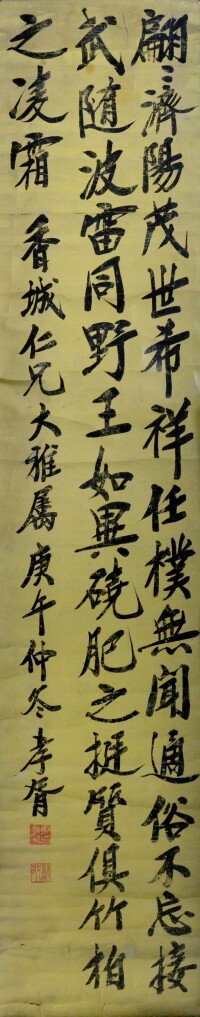 翩〻濟陽茂世希祥任樸無聞通俗不忘接
武随波雷同野王如異磽肥之挺質俱竹柏
之凌霜
香城仁兄大雅属庚午仲冬孝胥